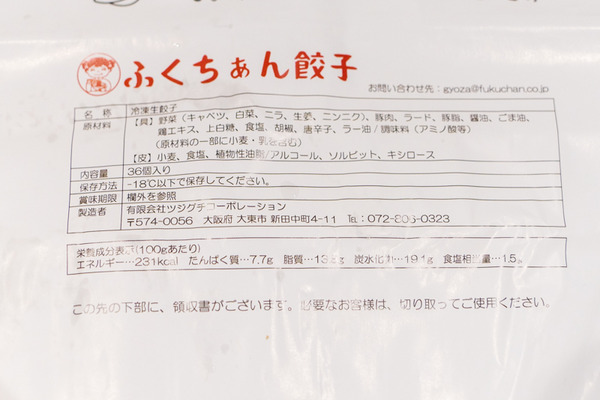 ふくちぁん餃子
お問い合わせ先：gyoza@fukuchan.co.jp
名 称 冷凍生餃子
原材料 【具】野菜（キャベツ、白菜、ニラ、生姜、ニンニク）、豚肉、ラード、豚脂、醤油、ごま油、
鶏エキス、上白糖、食塩、胡椒、唐辛子、ラー油／調味料（アミノ酸等）
（原材料の一部に小麦・乳を含む）
【皮】小麦、食塩、植物性油脂/アルコール、ソルビット、キシロース
内容量 36個入り
保存方法 -18℃以下で保存してください。
賞味期限 欄外を参照
製造者 有限会社ツジグチコーポレーション
〒574-0056 大阪府 大東市 新田中町4-11 TEL：072-806-0323
栄養成分表示(100gあたり)
エネルギー…231kcal たんぱく質…7.7g 脂質…13.2g 炭水化物…19.1g 食塩相当量…1.5g
この先の下部に、領収書がございます。必要なお客様は、切り取ってご使用ください。